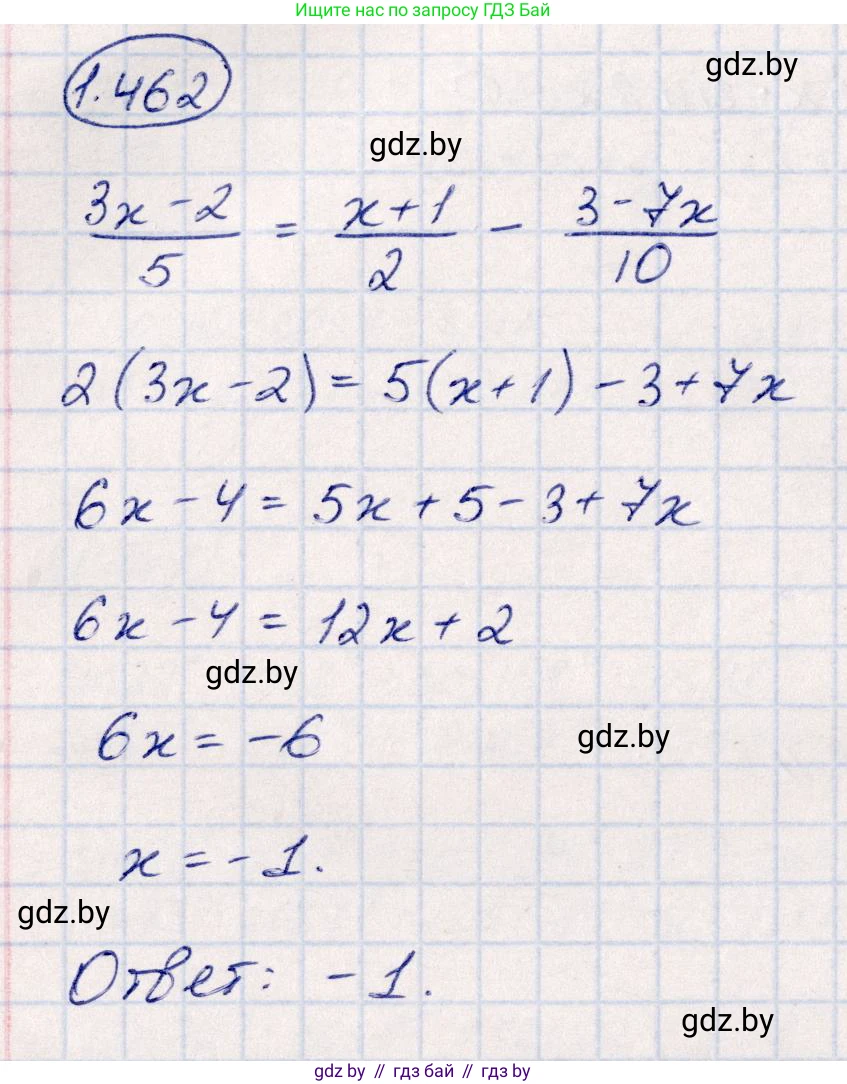 Ищите нас по запросу ГДЗ Бай
1.462
gdz.by
gdz.by
3x - 2 / 5 = x + 1 / 2 - 3 - 7x / 10
2(3x - 2) = 5(x + 1) - 3 + 7x
6x - 4 = 5x + 5 - 3 + 7x
6x - 4 = 12x + 2
gdz.by
6x = -6
gdz.by
x = -1.
gdz.by
Ответ: -1.
gdz.by
gdz.by // гдз бай // gdz.by